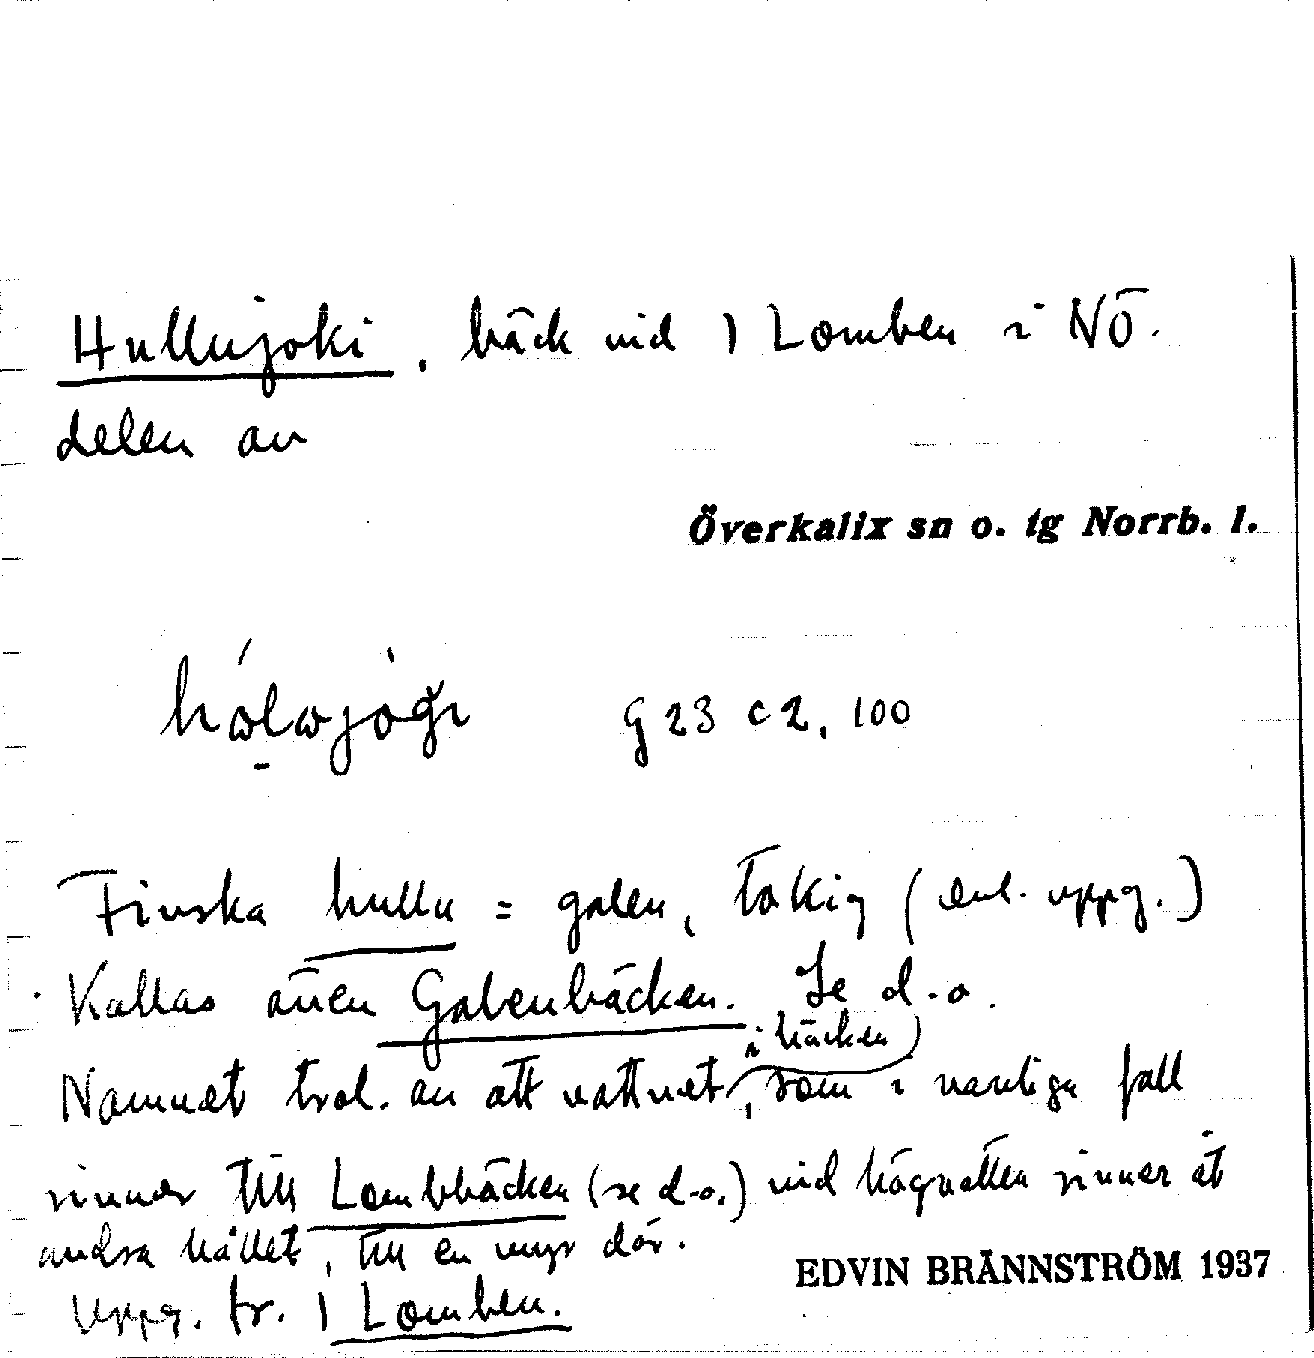 Hullujoki, bäck vid 1 Lomben i NÖ.
delen av
Överkalix sn o. tg Norrb. l.
G 23 c 2, 100
Finska hullu = galen, tokig (enl. uppg.)
Kallas även Galenbäcken. Se d.o.
i bäcken
Namnet trol. av att vattnet, som i vanliga fall
rinner till Lombbäcken (se d.o.) vid högvatten rinner åt
andra hållet, till en myr där.
EDVIN BRÄNNSTRÖM 1937
Uppg. fr. 1 Lomben.